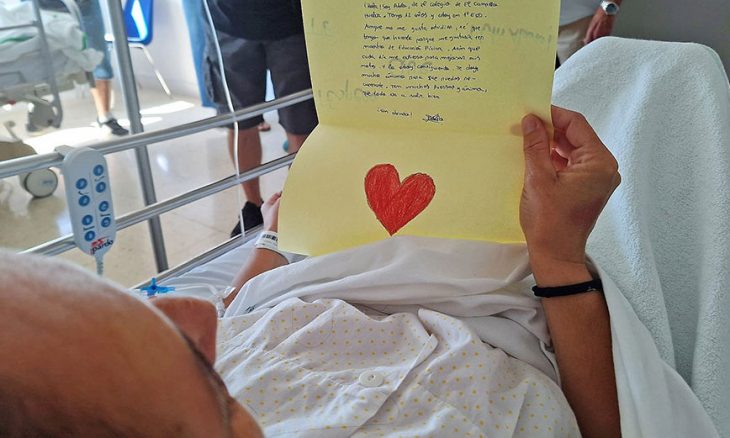 ¡Hola! Soy de colegio de El Campillo
Huelva. Tengo 12 años y estoy en 1º ESO.
Aunque no me gusta estudiar, se que
tengo que hacerlo, porque me gustaría ser
maestra de Educación Física. Aún que
cada día me esfuerzo para mejorar mis
notas y lo estoy consiguiendo. Te deseo
mucho ánimo para que puedas
y ánimo,
que todo va a salir bien
¡Un abrazo!
pardo